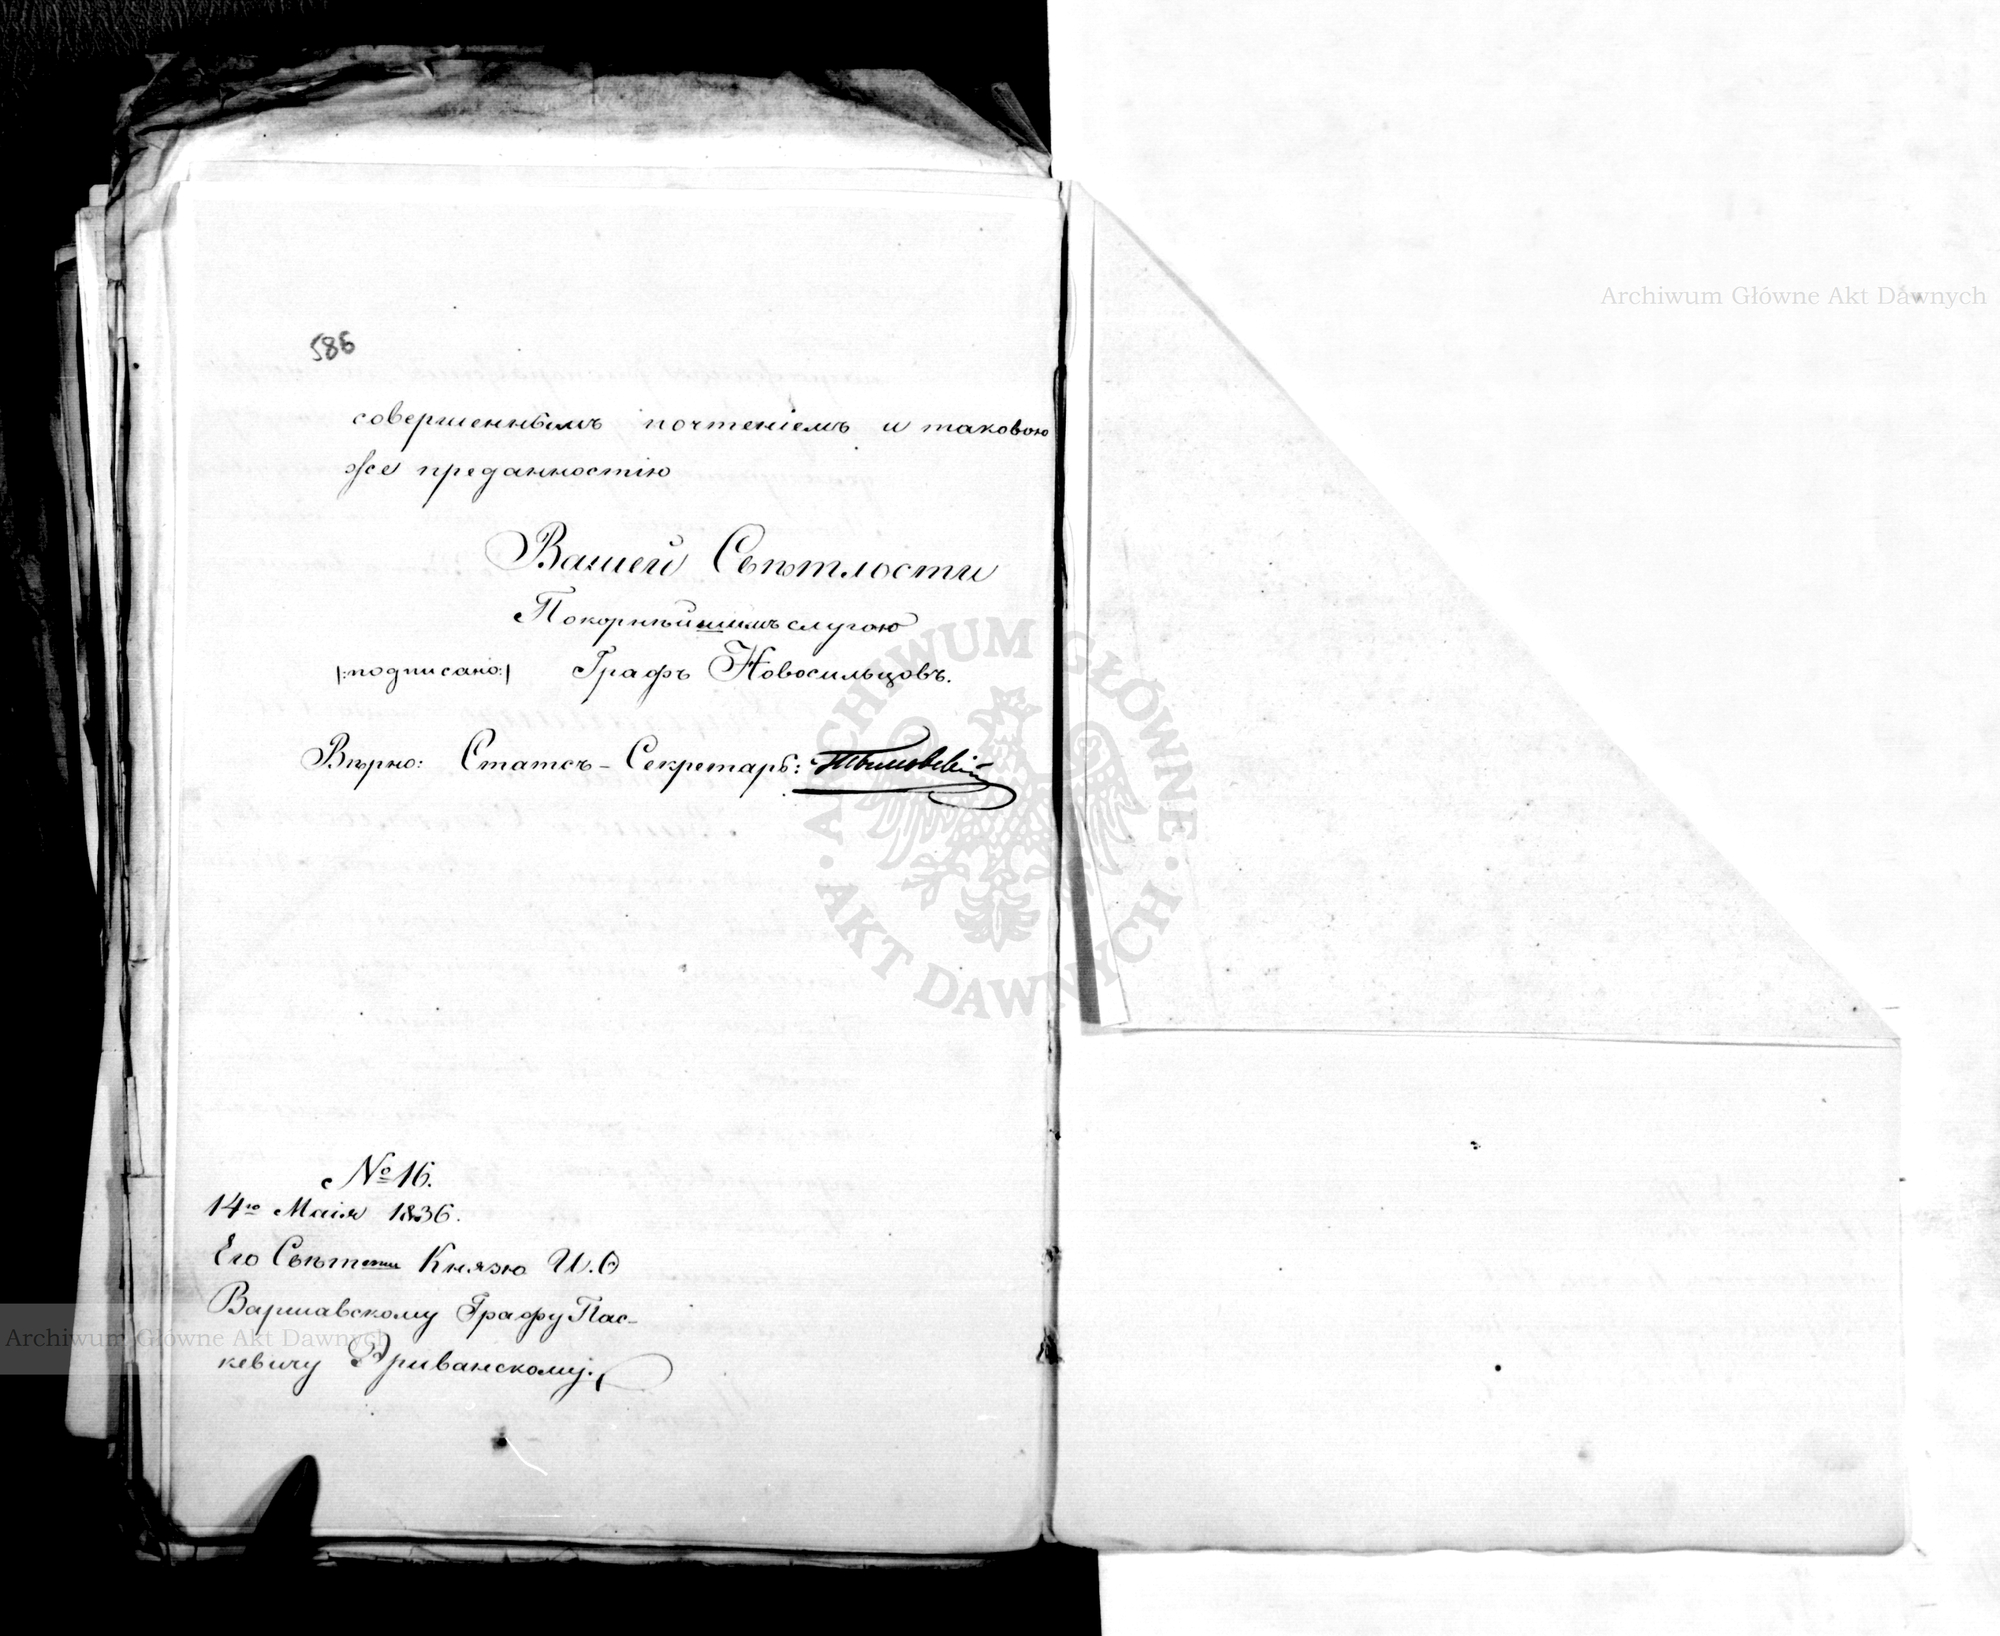 586
совершеннымъ почтеніемъ и таковою
же преданностію
Вашей Свѣтлости
Покорнѣйшимъ слугою
|:подписано:| Графъ Новосильцовъ.
Вѣрно: Статсъ-Секретарь:
№ 16.
14го Маія 1836.
Его Свѣтсти Князю И. Ѳ
Варшавскому Графу Пас-
кевичу Эриванскому.
Archiwum Główne Akt Dawnych
Archiwum Główne Akt Dawnych
ARCHIWUM GŁÓWNE
AKT DAWNYCH